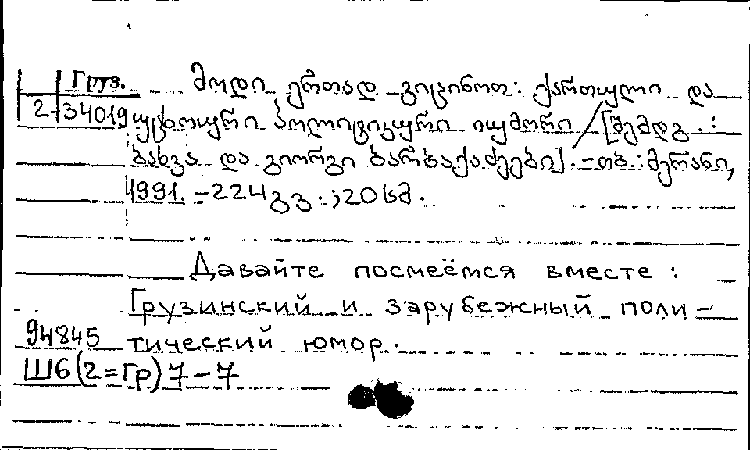 Груз. მოდი ერთად ვიცინოთ : ქართული და
2-34019 უცხოური პოლიტიკური იუმორი / [შემდგ. :
ბახვა და გიორგი ბარბაქაძეები]. – თბ. : მერანი,
1991. – 224 გვ. ; 20 სმ.
Давайте посмеёмся вместе :
Грузинский и зарубежный поли-
94845 тический юмор.
Ш6(2=Гр)7-7